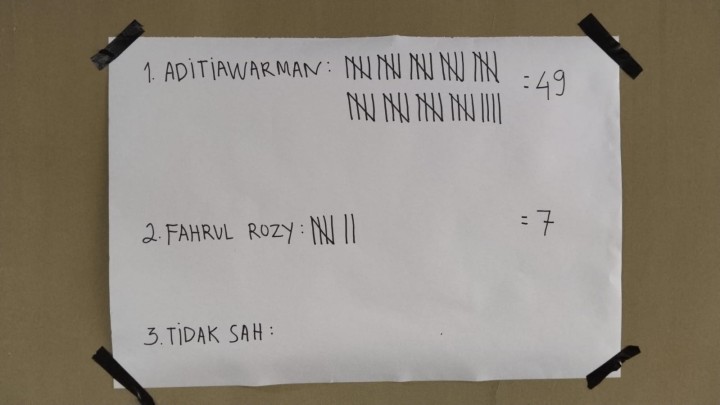 1. ADITIAWARMAN: 𝍸 𝍸 𝍸 𝍸 𝍸 = 49
𝍸 𝍸 𝍸 𝍸 ||||
2. FAHRUL ROZY: 𝍸 || = 7
3. TIDAK SAH: